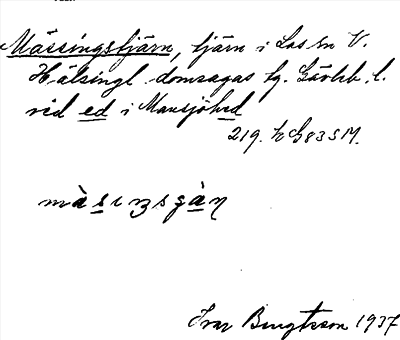 Mässingstjärn, tjärn i Los sn V.
Hälsingl. domsagas tg. Gävleb. l.
vid ed i Mansjöhed
219. h G835M.
màsıŋsgàn
Ivar Bengtsson 1937